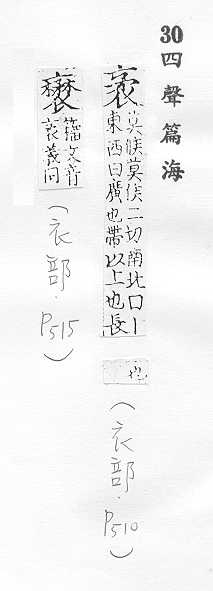 30四聲篇海
袤
莫候莫侯二切南北曰丨
東西曰廣也帶以上也長
也
(衣部.P510)
籀文音
袤義同
(衣部.P515)